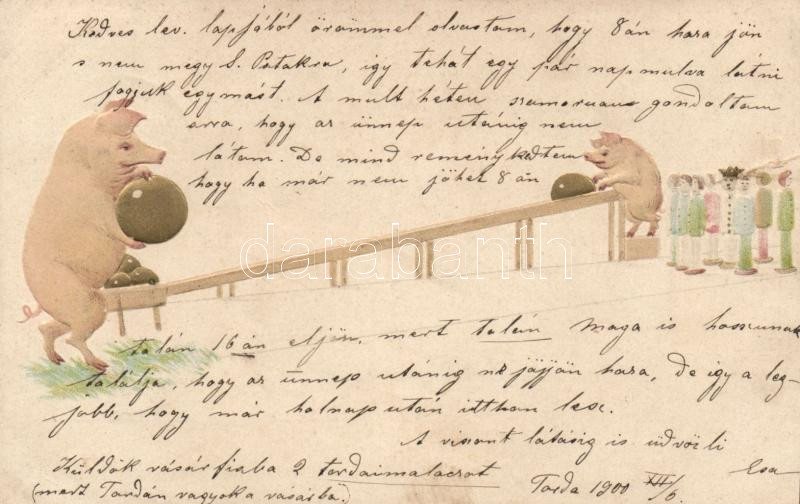 Kedves lev. lapjából örömmel olvastam, hogy 8án haza jön
s nem megy S. Patakra, így tehát egy pár nap mulva látni
fogjuk egymást. A mult héten szomoruan gondoltam
arra, hogy az ünnep utánig nem
látom. De mind reménykedtem
hogy ha már nem jöhet 8án
talán 16án eljön, mert talán maga is hosszunak
találja, hogy az ünnep utánig ne jöjjön haza, De így a leg-
jobb, hogy már holnap után itthon lesz.
A viszont látásig is üdvözli
Küldök vásárfiaba 2 tordaimalaczot
(mert Tordán vagyok a vásárba.)
Torda 1900 XII/6.
darabanth